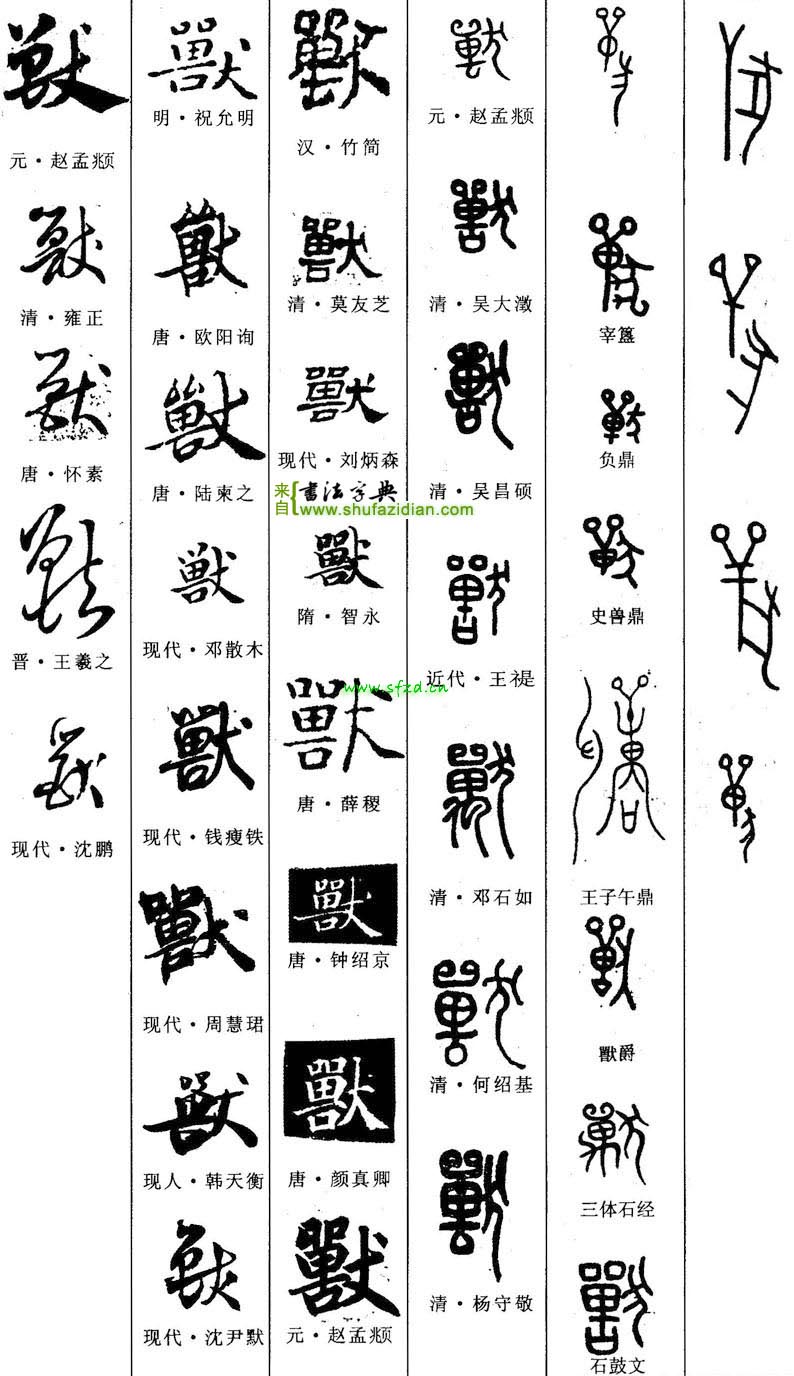 獸
元·赵孟頫
獸
清·雍正
獸
唐·怀素
獸
晋·王羲之
獸
现代·沈鹏
獸
明·祝允明
獸
唐·欧阳询
獸
唐·陆柬之
獣
现代·邓散木
獸
现代·钱瘦铁
獸
现代·周慧珺
獸
现人·韩天衡
獸
现代·沈尹默
獸
汉·竹简
獸
清·莫友芝
獸
现代·刘炳森
来自{书法字典
www.shufazidian.com
獸
隋·智永
www.sfzd.cn
獸
唐·薛稷
獸
唐·钟绍京
獸
唐·颜真卿
獸
元·赵孟頫
獸
元·赵孟頫
獸
清·吴大澂
獸
清·吴昌硕
獸
近代·王禔
獸
清·邓石如
獸
清·何绍基
獸
清·杨守敬
宰簋
负鼎
史兽鼎
王子午鼎
獸爵
三体石经
獸
石鼓文